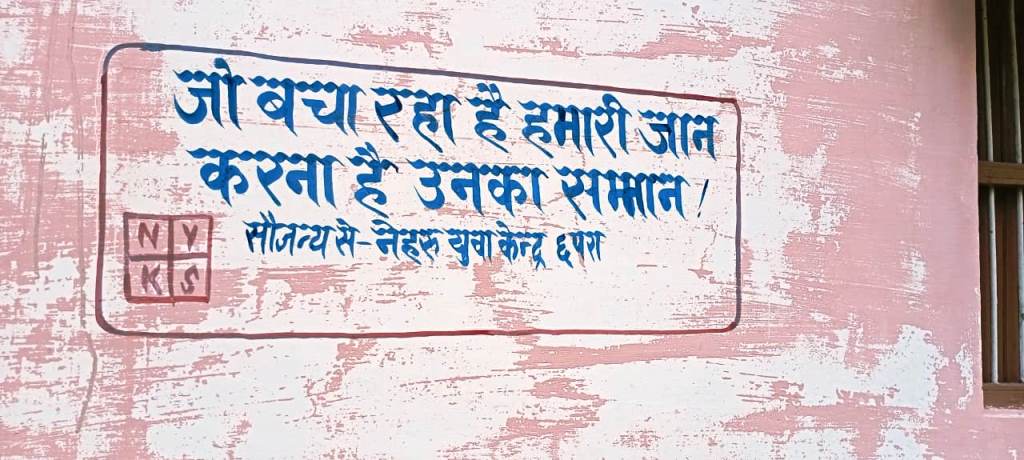 जो बचा रहा है हमारी जान
करना है उनका सम्मान!
सौजन्य से - नेहरू युवा केन्द्र छपरा
N Y
K S